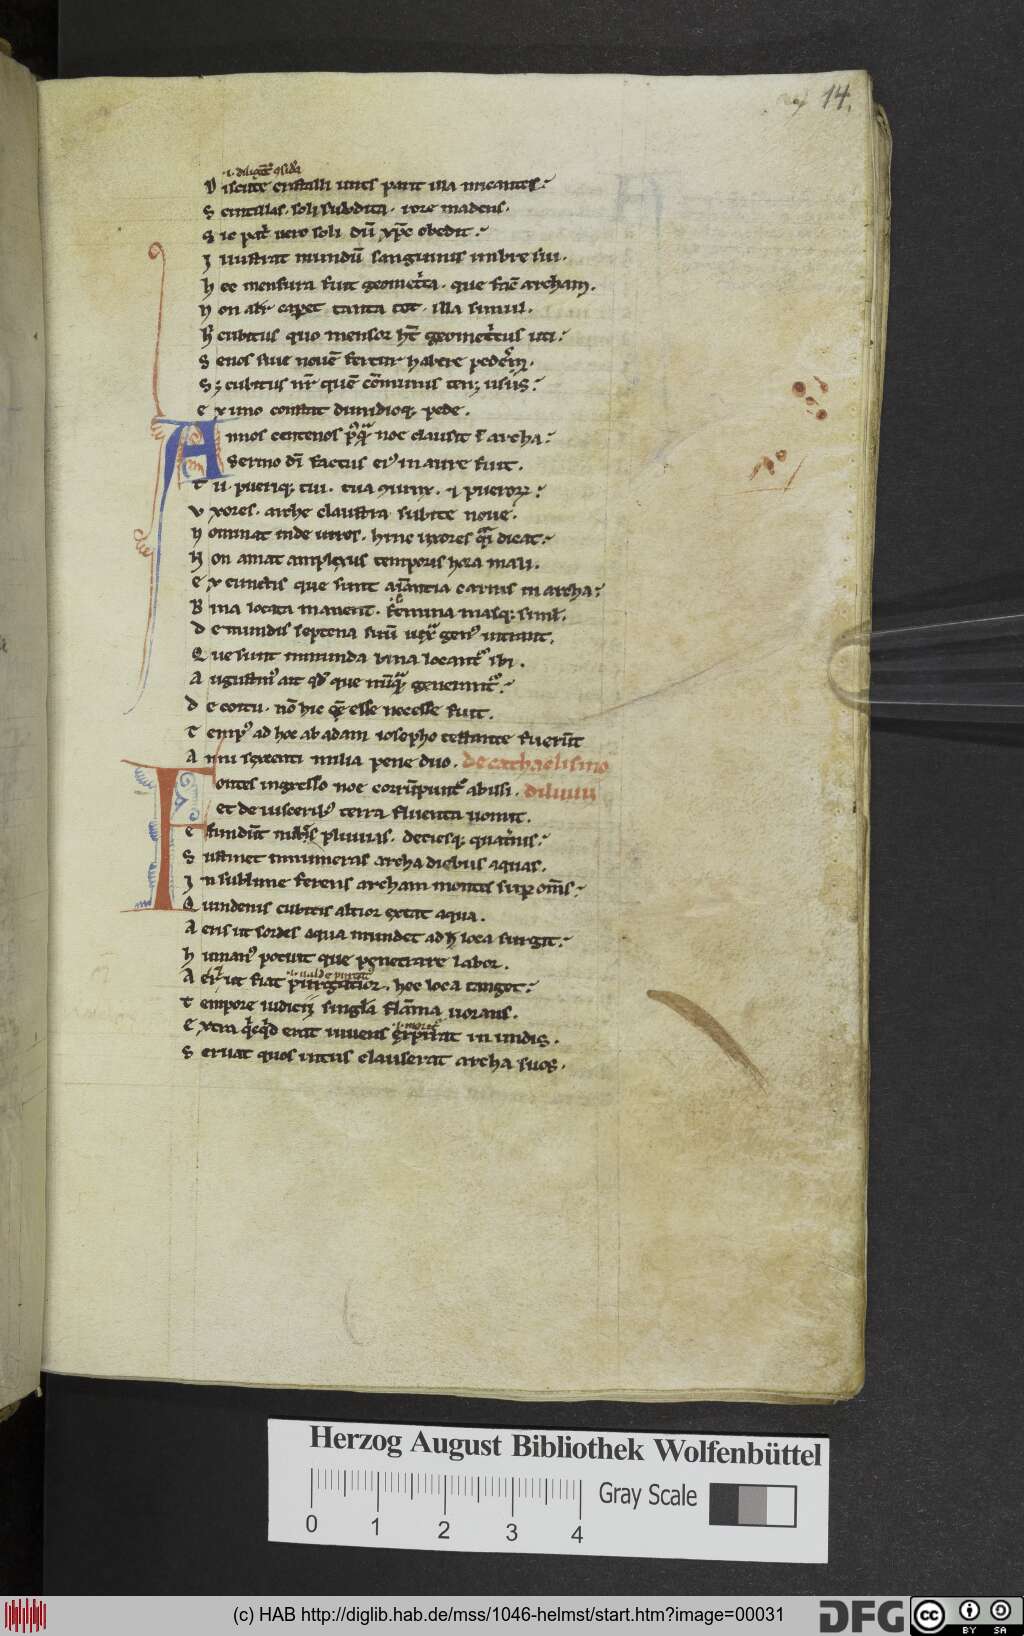 14.
.i. diligent
Discute cristalli vires parit illa micantes:
Scintillas. soli subdita. rore madens.
Sic pat vero soli dū xp̄c obedit:
Illustrat mundū sanguinis imbre sui.
hec mensura fuit geomet'ca. que fac̄ archam.
Non alit caperet tanta tot. illa simul.
h̄ cubitus quo mensor h̄t geomet'cus uti:
Senos sive novē fertur habere pedes.
Sꝫ cubitus nr̄ quē cōmunis tenꝫ usus:
Ex uno constat dimidioqꝫ pede.
Annos centenos noe clausit ī archa:
Sermo dī factus ei' in aure fuit.
Tu. pueriqꝫ tui. tua 9iunx. et pueroꝝ:
Uxores. arche claustra subite nove.
Nominat inde viros. hinc uxores dicat:
Non amat amplexus temporis hora mali.
Ex cunctis que sunt aīantia carnis in archa:
Bina locata manent. femina masqꝫ simł.
De mundis septena suū gen' intrant.
Que sunt inmunda bina locant' ibi.
Augustin' ait qd' que nūq generant':
De coitu. nō hic esse necesse fuit.
Temp' ad hoc ab adam iosepho testante fuerūt
Anni sexcenti milia pene duo. de cathaclismo
Fontes ingresso noe corrūpunt' abissi. diluvii
et de viscerib' terra fluenta vomit.
Effundūt nub's pluvias. deciesqꝫ quat'nis:
Sustinet innumeras archa diebus aquas.
In sublime ferens archam montes sup om̄s:
Quindenis cubitis altior extat aqua.
Aeris ut sordes aqua mundet ad h̄ loca surgit:
human' potuit que penetrare labor.
.i. valde purgat'
Aer ut fiat purgatior. hec loca tanget:
Tempore iudicij singł'a flāma vorans.
.i. moret'
Extra qcqd erat vivens expirat in undis.
Servat quos intus clauserat archa suos.
Herzog August Bibliothek Wolfenbüttel
0 1 2 3 4
Gray Scale
(c) HAB http://diglib.hab.de/mss/1046-helmst/start.htm?image=00031
DFG
cc BY SA